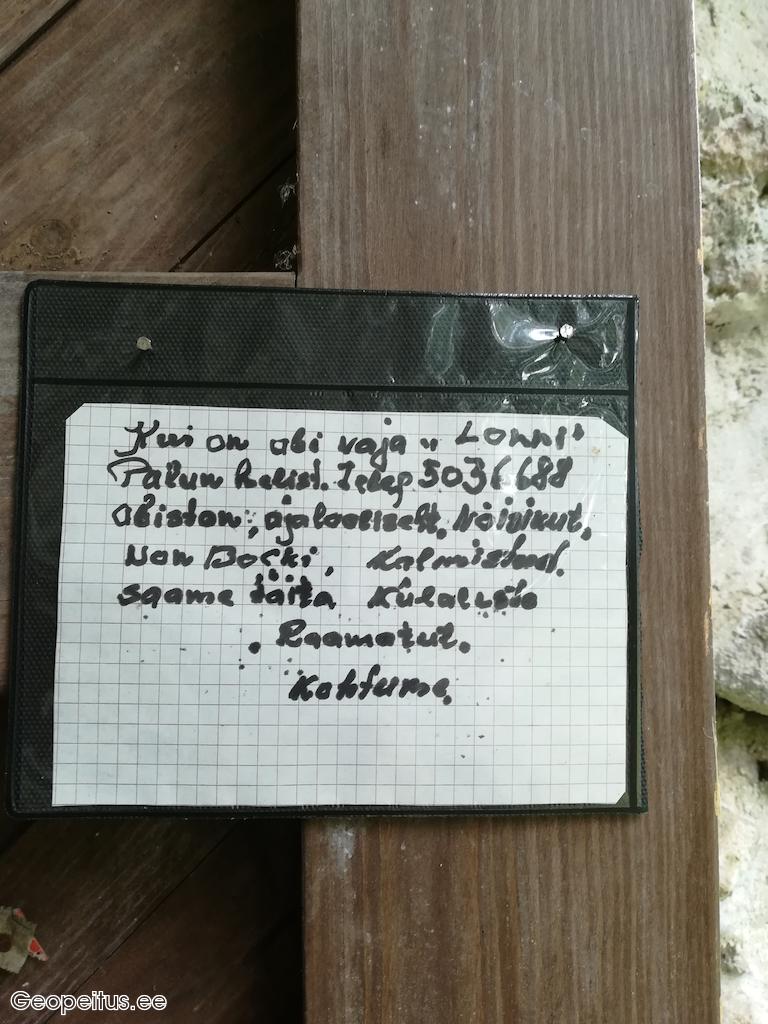 Kui on abi vaja „Lonni“
Palun helist. Teleg 5036688
abistan, ajalooliselt, Võisikut,
Von Bocki, Kalmistud.
saame täita Külaliste
. Raamatut.
Kohtume.
Geopeitus.ee